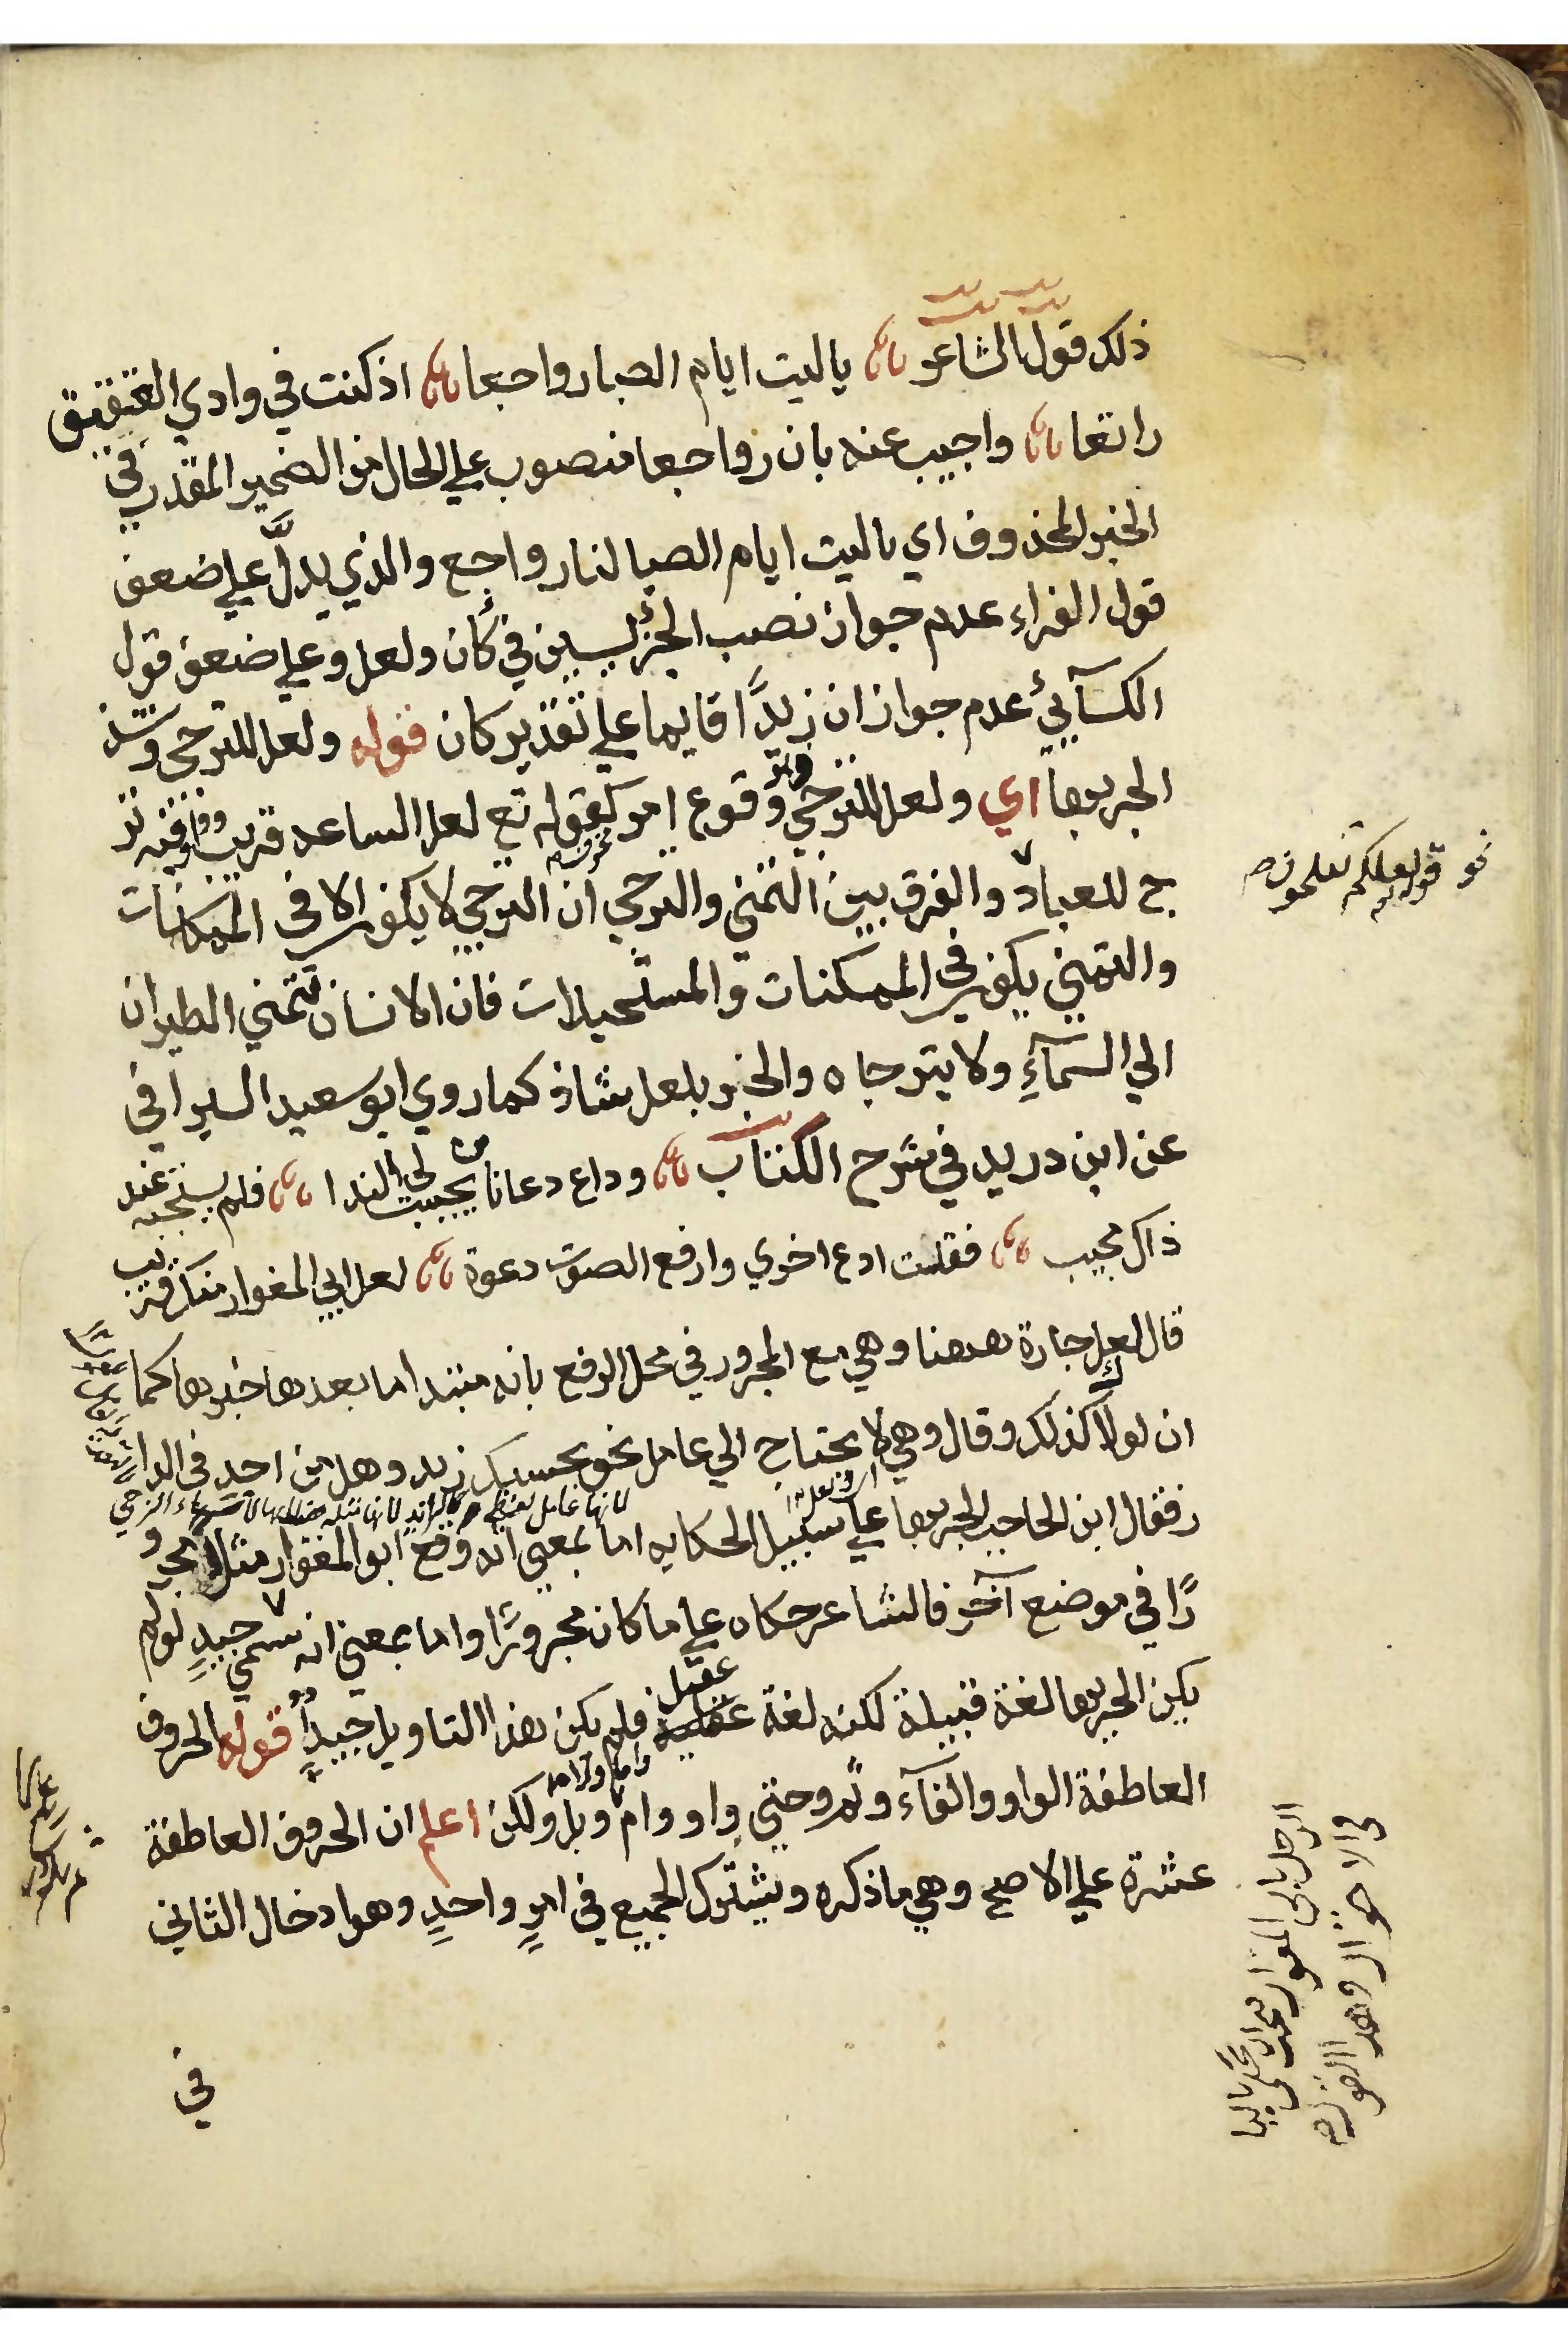 ذلك قول الشاعر ياليت ايام الصبا رواجعا اذ كنت في وادي العقيق
راتعا واجيب عنه بان رواجعا منصوب علي الحال من الضمير المقدر في
الخبر المحذوف اي ياليت ايام الصبا لنا رواجع والذي يدلّ علي ضعف
قول الفراء عدم جواز نصب الجزئيين في كأن ولعل وعلي ضعف قول
الكسآئي عدم جواز ان زيدًا قايما علي تقدير كان قوله ولعل للترجي وشذ
الجر بها اي ولعل للترجي وقوع امر كقوله تع لعل الساعه قريب وفيه تر
ج للعباد والفرق بين التمني والترجي ان الترجي لا يكون الا في الممكنات
نحو قوله لعلكم تفلحون
والتمني يكون في الممكنات والمستحيلات فان الانسان يتمني الطيران
الي السمآءِ ولا يترجاه والجر بلعل شاذ كما روي ابو سعيد السيرافي
عن ابن دريد في شرح الكتاب وداع دعانا من يجيب الي الندا فلم يستجبه عند
ذاك مجيب فقلت ادع اخري وارفع الصوت دعوة لعل ابي المغوار منك قريب
قال لعل جارة ههنا وهي مع المجرور في محل الرفع بانه مبتدا ما بعدها خبرها كما
ان لولاك كذلك وقال وهي لا يحتاج الي عامل نحو بحسبك زيد وهل من احدٍ في الدا
لانها عامل لفظي كالزائد لانها
ر فقال ابن الحاجب الجر بها علي سبيل الحكايه اما بمعني انه وقع ابو المغوار مثلا مجرو
رًا في موضع آخر فالشاعر حكاه علي ما كان مجرورًا واما بمعني انه سمي جيدٍ لو لم
يكن الجر بها لغة قبيلة لكنه لغة عقيل فلم يكن هذا التاويل جيدًا قوله الحروف
العاطفة الواو والفآء وثم وحتي واو وام وبل ولكن اعلم ان الحروف العاطفة
عشرة علي الاصح وهي ما ذكره ويشترك الجميع في امرٍ واحدٍ وهو ادخال الثاني
في